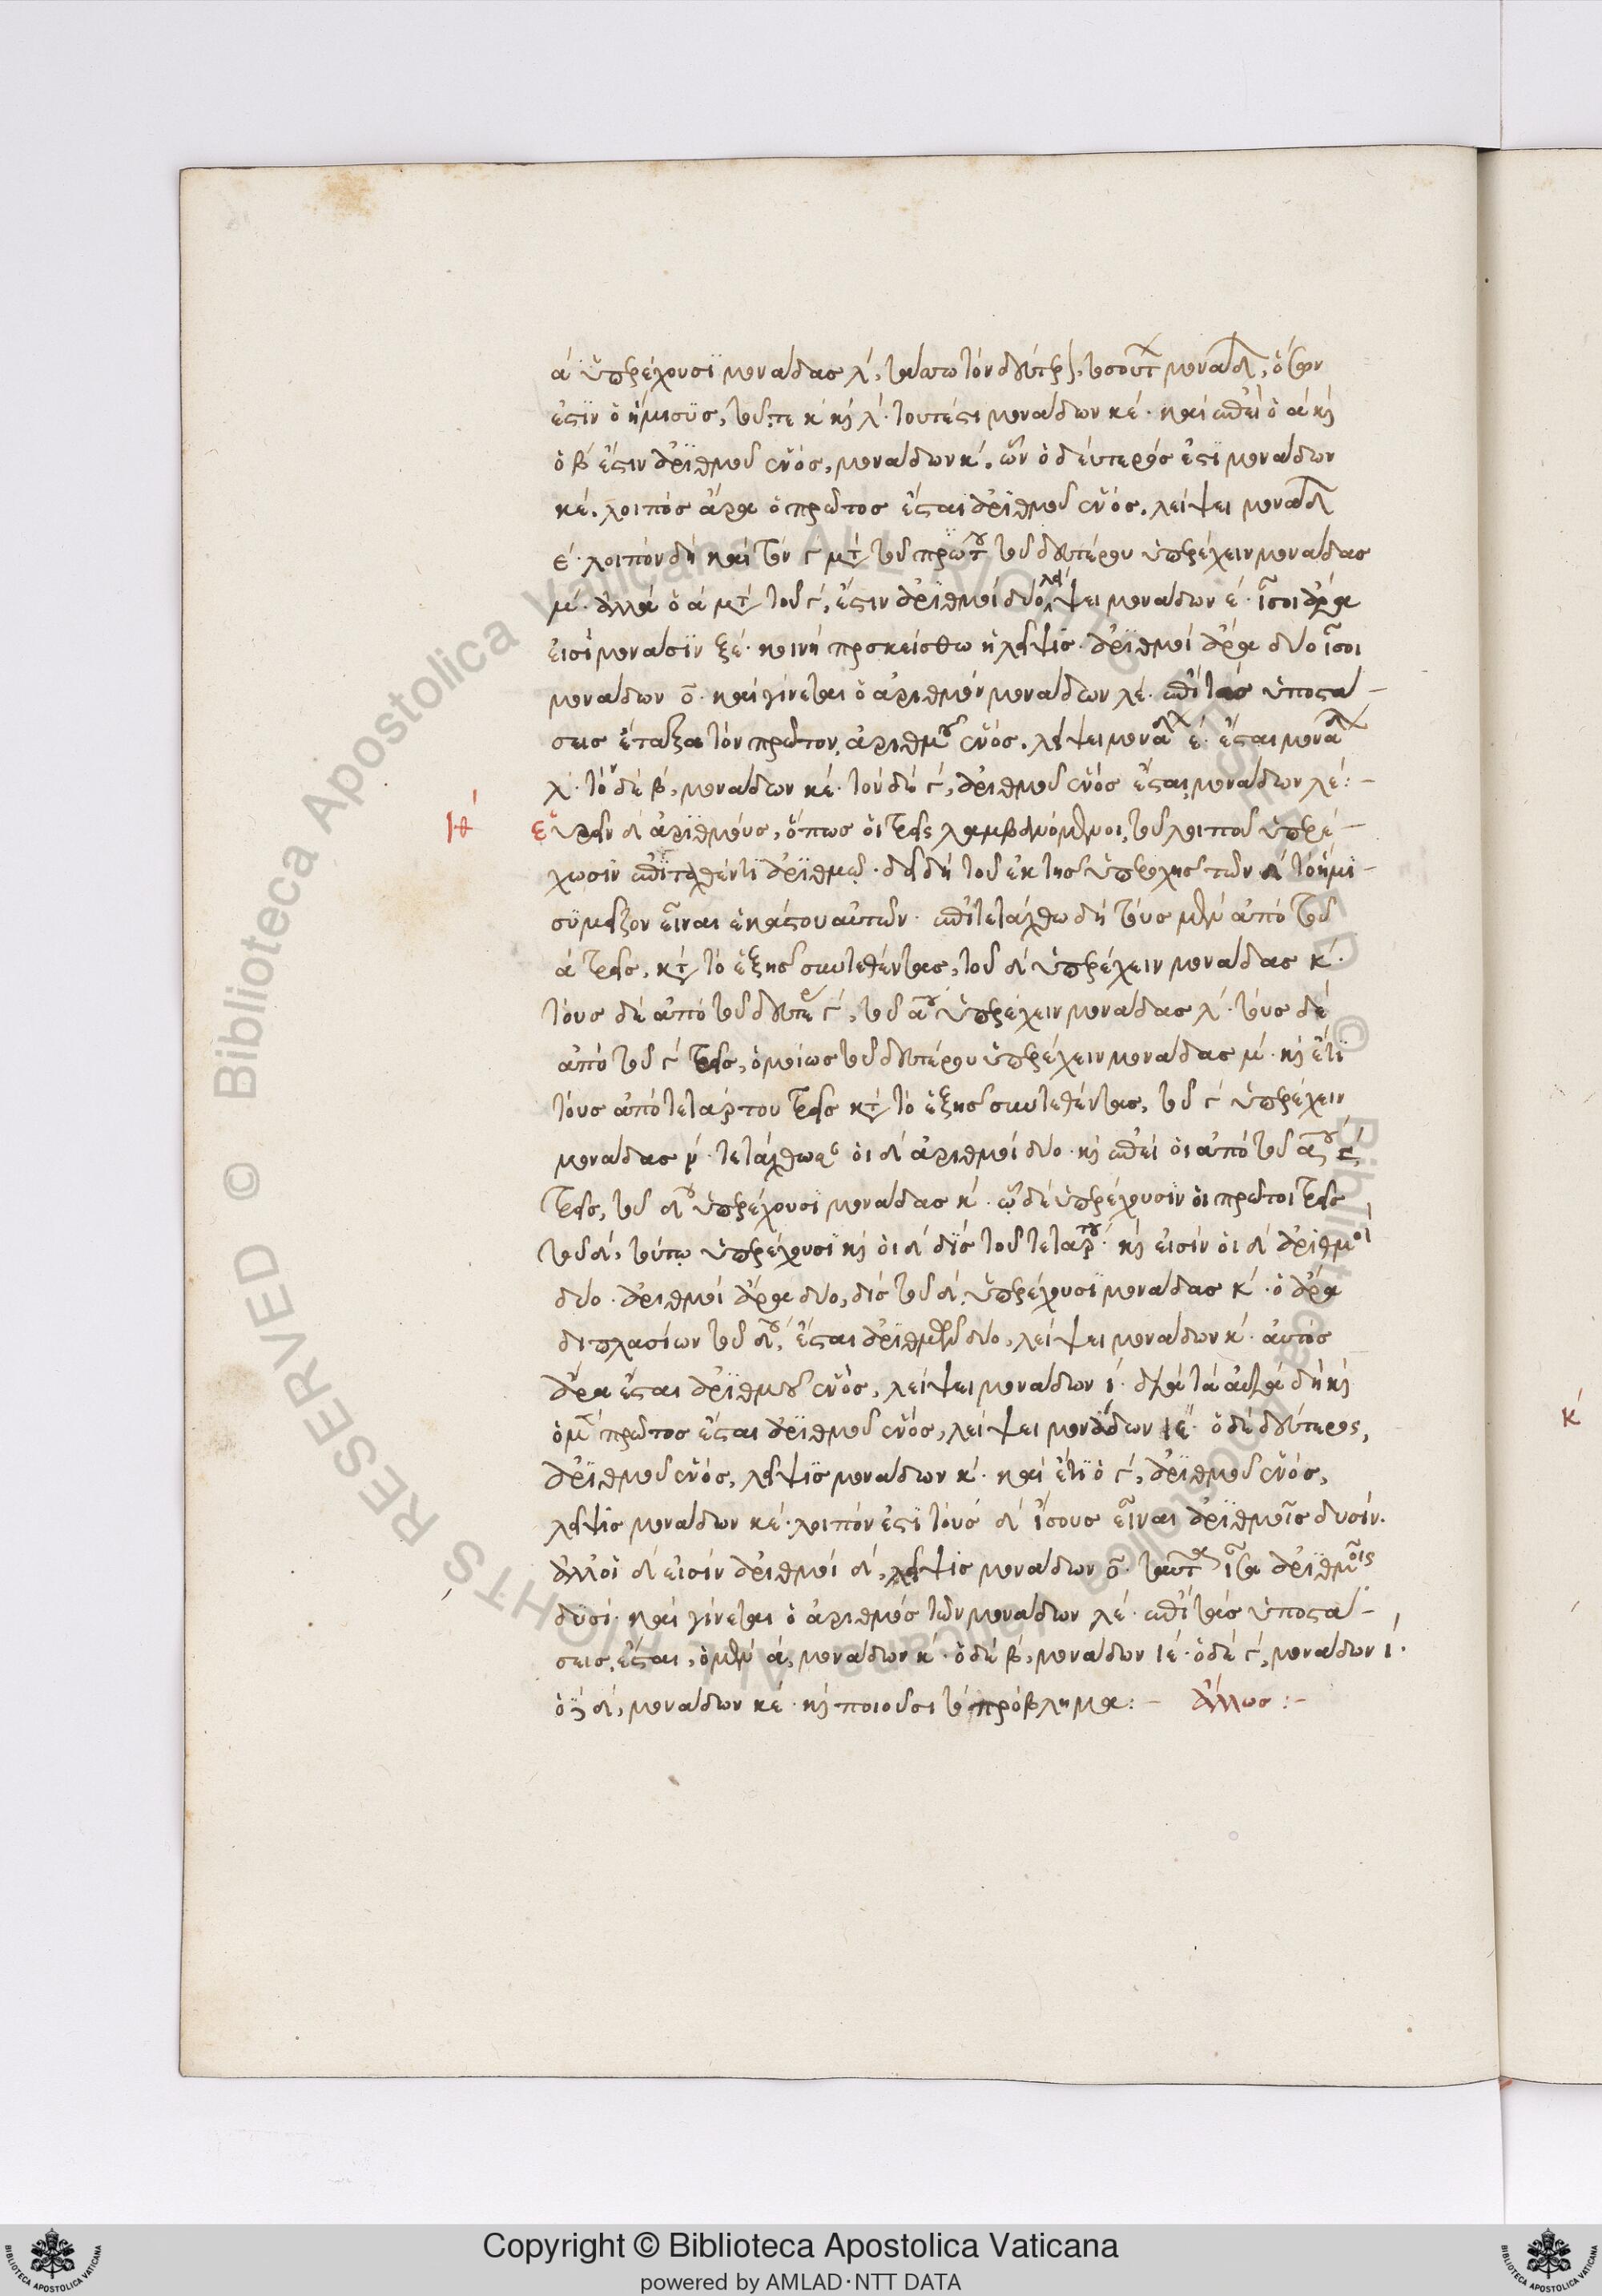 ά ὑπερέχουσι μονάδας λ́,
ἐστὶν ὁ ἥμισυς, τοῦτε κ́ καὶ λ́· τουτέστι μονάδων κέ· καὶ ἐπεὶ ὁ ά καὶ
ὁ β́ ἐστιν ἀριθμοῦ ἑνός, μονάδων κ́, ὧν ὁ δεύτερός ἐστι μονάδων
κέ. λοιπός ἄρα ὁ πρῶτος ἔσται ἀριθμοῦ ἑνός, λείψει μονάδ
έ· λοιπόν δή καὶ τὸν γ́ μετὰ τοῦ πρώτου τοῦ δευτέρου ὑπερέχειν μονάδας
μ́· ἀλλά ὁ ά μετὰ τοῦ γ́, ἐστιν ἀριθμοί δύο λείψει μονάδων έ· ἴσοι ἄρα
εἰσὶ μονάσιν ξέ· κοινή προσκείσθω ἡ λεῖψις· ἀριθμοί ἄρα δύο ἴσοι
μονάδων ο· καὶ γίνεται ὁ ἀριθμόν μονάδων λέ· ἐπὶ τὰς ὑποστά-
σεις ἔταξα τὸν πρῶτον ἀριθμοῦ ἑνός, λείψει μονάδ έ· ἔσται μονάδ
λ́· τὸν δὲ β́, μονάδων κέ· τὸν δὲ γ́, ἀριθμοῦ ἑνός ἔσται μονάδων λέ:-
ιθ́ εὑρεῖν δ́ ἀριθμούς, ὅπως οἱ τρεῖς λαμβανόμενοι, τοῦ λοιποῦ ὑπερέ-
χωσιν ἐπιταχθέντι ἀριθμῷ· δεῖ δή τοῦ ἐκ τῆς ὑπεροχῆς τῶν δ́ τὸ ἥμι-
συ μεῖζον εἶναι ἑκάστου αὐτῶν· ἐπιτετάχθω δή τοὺς μὲν ἀπό τοῦ
ά τρεῖς, κατὰ τὸ ἑξῆς συντεθέντας, τοῦ δ́ ὑπερέχειν μονάδας κ́·
τοὺς δέ ἀπό τοῦ δευτέρου γ́, τοῦ ά ὑπερέχειν μονάδας λ́· τοὺς δέ
ἀπό τοῦ γ́ τρεῖς, ὁμοίως τοῦ δευτέρου ὑπερέχειν μονάδας μ́· καὶ ἔτι
τοὺς ἀπό τετάρτου τρεῖς κατὰ τὸ ἑξῆς συντεθέντας, τοῦ γ́ ὑπερέχειν
μονάδας ν́· τετάχθωσαν οἱ δ́ ἀριθμοί δύο· καὶ ἐπεί οἱ ἀπό τοῦ ά γ́,
τρεῖς, τοῦ δ́ ὑπερέχουσι μονάδας κ́· ᾧ δέ ὑπερέχουσιν οἱ πρῶτοι τρεῖς
τοῦ δ́, τούτῳ ὑπερέχουσι καὶ οἱ δ́ δὶς τοῦ τετάρτου· καὶ εἰσίν οἱ δ́ ἀριθμοὶ
δύο· ἀριθμοί ἄρα δύο, δίς τοῦ δ́, ὑπερέχουσι μονάδας κ́· ὁ ἄρα
διπλασίων τοῦ δ́, ἔσται ἀριθμῶν δύο, λείψει μονάδων κ́· αὐτός
ἄρα ἔσται ἀριθμοῦ ἑνός, λείψει μονάδων ί· διὰ τὰ αὐτά δή καὶ
ὁ μὲν πρῶτος ἔσται ἀριθμοῦ ἑνός, λείψει μονάδων ιέ· ὁ δέ δεύτερος,
ἀριθμοῦ ἑνός, λεῖψις μονάδων κ́· καὶ ἔτι ὁ γ́, ἀριθμοῦ ἑνός,
λεῖψις μονάδων κέ· λοιπόν ἐστι τοὺς δ́ ἴσους εἶναι ἀριθμοῖς δυσίν.
ἀλλ' οἱ δ́ εἰσίν ἀριθμοί δ́, λεῖψις μονάδων ο· ταῦτα ἴσα ἀριθμοῖς
δυσί· καὶ γίνεται ὁ ἀριθμός τῶν μονάδων λέ· ἐπὶ τὰς ὑποστά-
σεις, ἔσται, ὁ μὲν ά, μονάδων κ́· ὁ δέ β́, μονάδων ιέ· ὁ δέ γ́, μονάδων ί·
ὁ δὲ δ́, μονάδων κέ· καὶ ποιοῦσι τὸ πρόβλημα:- ἄλλως:-
κ́
© Biblioteca Apostolica Vaticana ALL RIGHTS RESERVED
Copyright © Biblioteca Apostolica Vaticana
powered by AMLAD·NTT DATA
BIBLIOTECA APOSTOLICA VATICANA
BIBLIOTECA APOSTOLICA VATICANA